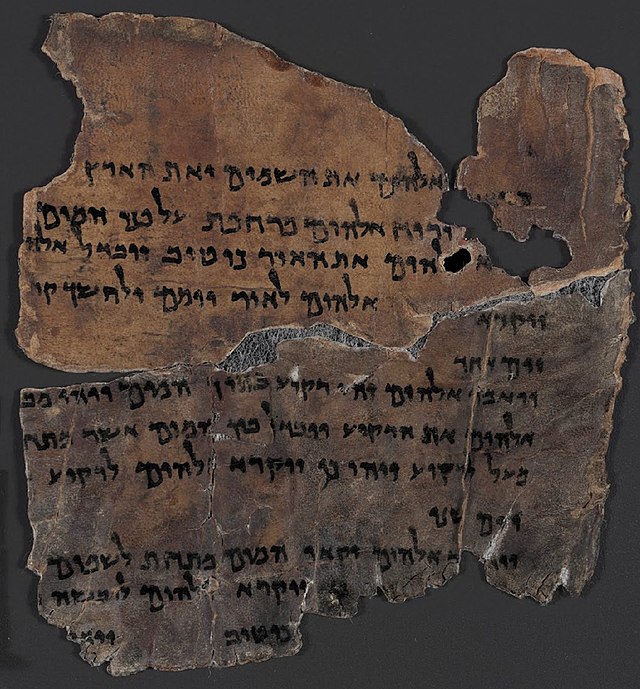 אלהים את השמים ואת הארץ
ורוח אלהים מרחפת על פני המים
אלהים את האור כי טוב ויבדל אלה
אלהים לאור יומם ולחשך קר
ויקרא
יום אחד
ויאמר אלהים יהי רקיע בתוך המים ויהי מב
אלהים את הרקיע ויבדל בין המים אשר מתח
מעל לרקיע ויהי כן ויקרא אלהים לרקיע
יום שני
ויאמר אלהים יקאו המים מתחת לשמים
ויקרא אלהים ליבשה
כי טוב ויאמ